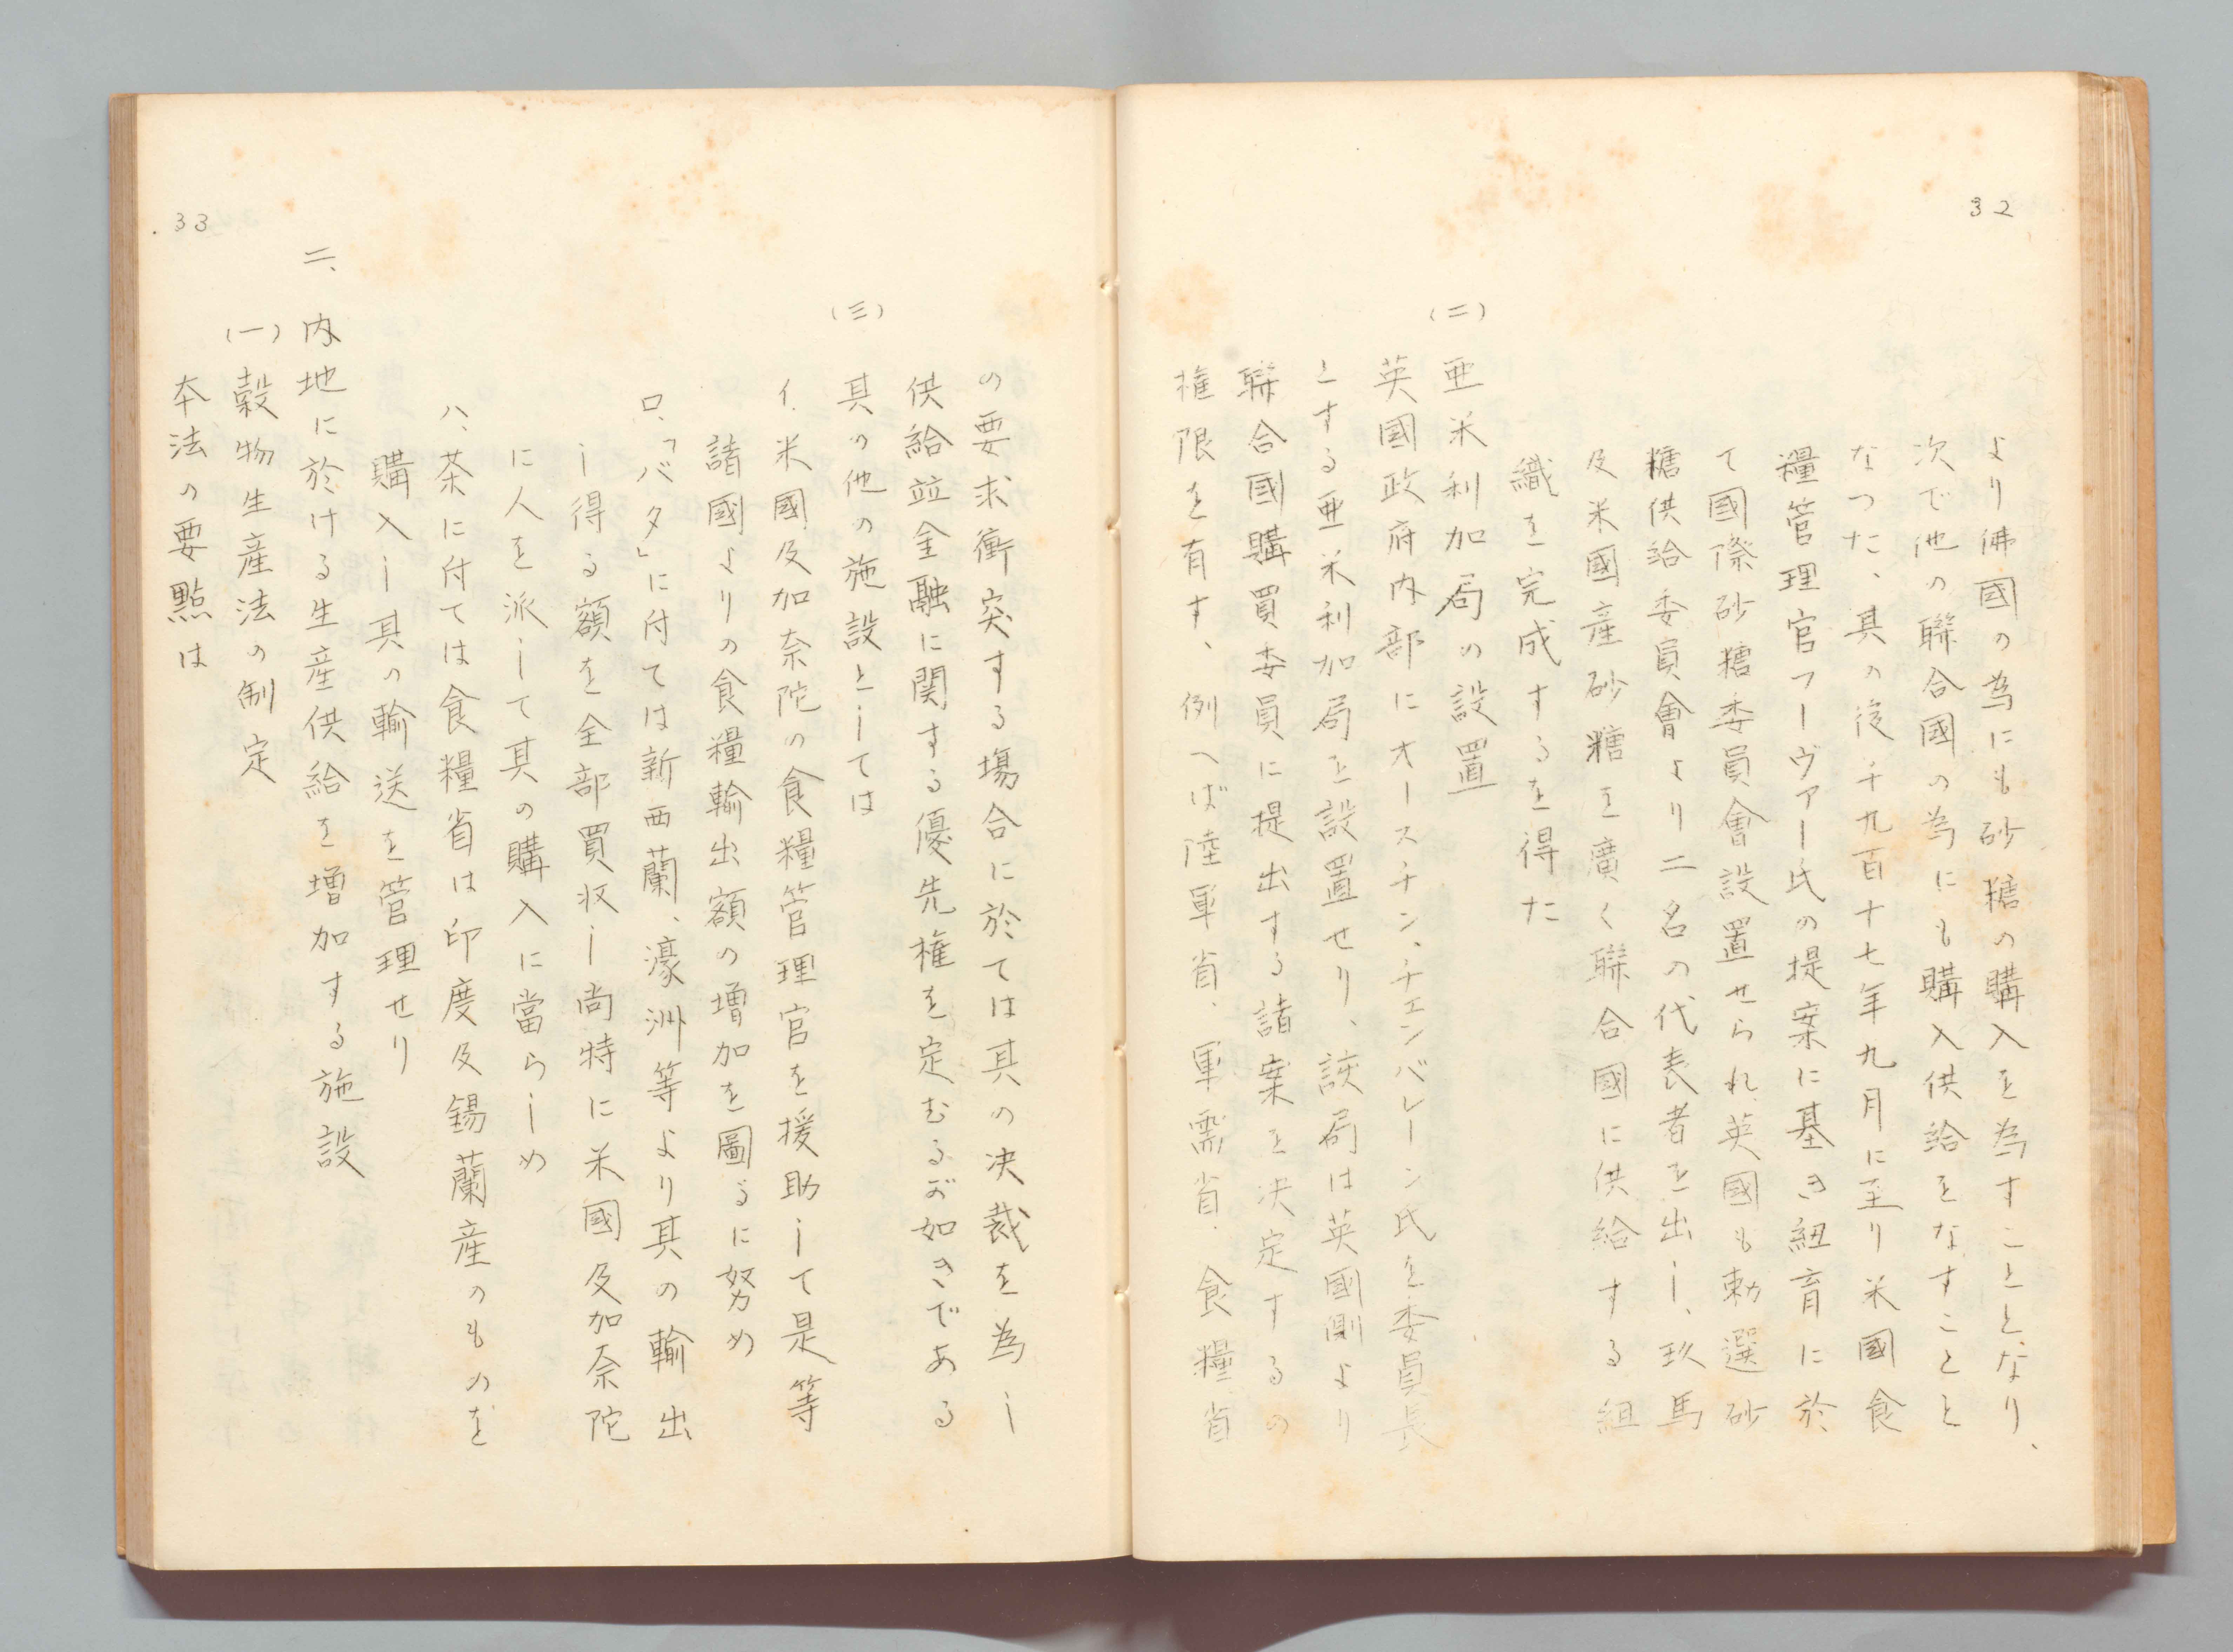 32
より佛國の為にも砂糖の購入を為すこととなり、
次で他の聯合國の為にも購入供給をなすことと
なつた、其の後千九百十七年九月に至り米國食
糧管理官フーヴァー氏の提案に基き紐育に於
て國際砂糖委員會設置せられ英國も勅選砂
糖供給委員會より二名の代表者を出し、玖馬
及米國産砂糖を廣く聯合國に供給する組
織を完成するを得た
(二)
亜米利加局の設置
英國政府内部にオースチン、チェンバレーン氏を委員長
とする亜米利加局を設置せり、該局は英國側より
聯合國購買委員に提出する諸案を決定するの
権限を有す、例へば陸軍省、軍需省、食糧省
の要求衝突する場合に於ては其の决裁を為し
供給並金融に関する優先権を定むるが如きである
(三)
其の他の施設としては
イ、米國及加奈陀の食糧管理官を援助して是等
諸國よりの食糧輸出額の増加を圖るに努め
ロ、「バタ」に付ては新西蘭、濠洲等より其の輸出
し得る額を全部買収し尚特に米國及加奈陀
に人を派して其の購入に當らしめ
ハ、茶に付ては食糧省は印度及錫蘭産のものを
購入し其の輸送を管理せり
二、内地に於ける生産供給を増加する施設
(一)穀物生産法の制定
本法の要點は
33